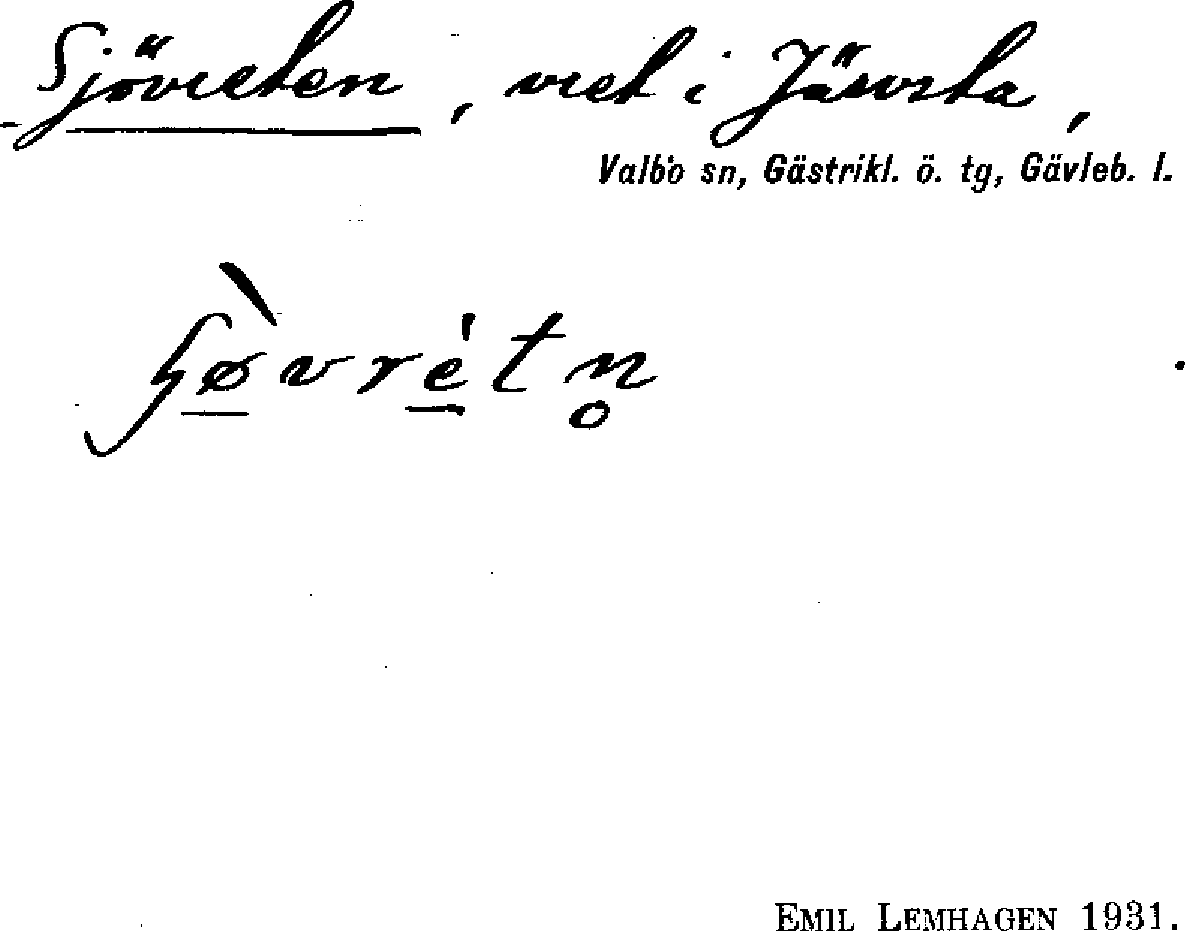 Sjövreten, vret i Järvsta,
Valbo sn, Gästrikl. ö. tg, Gävleb. l.
EMIL LEMHAGEN 1931.